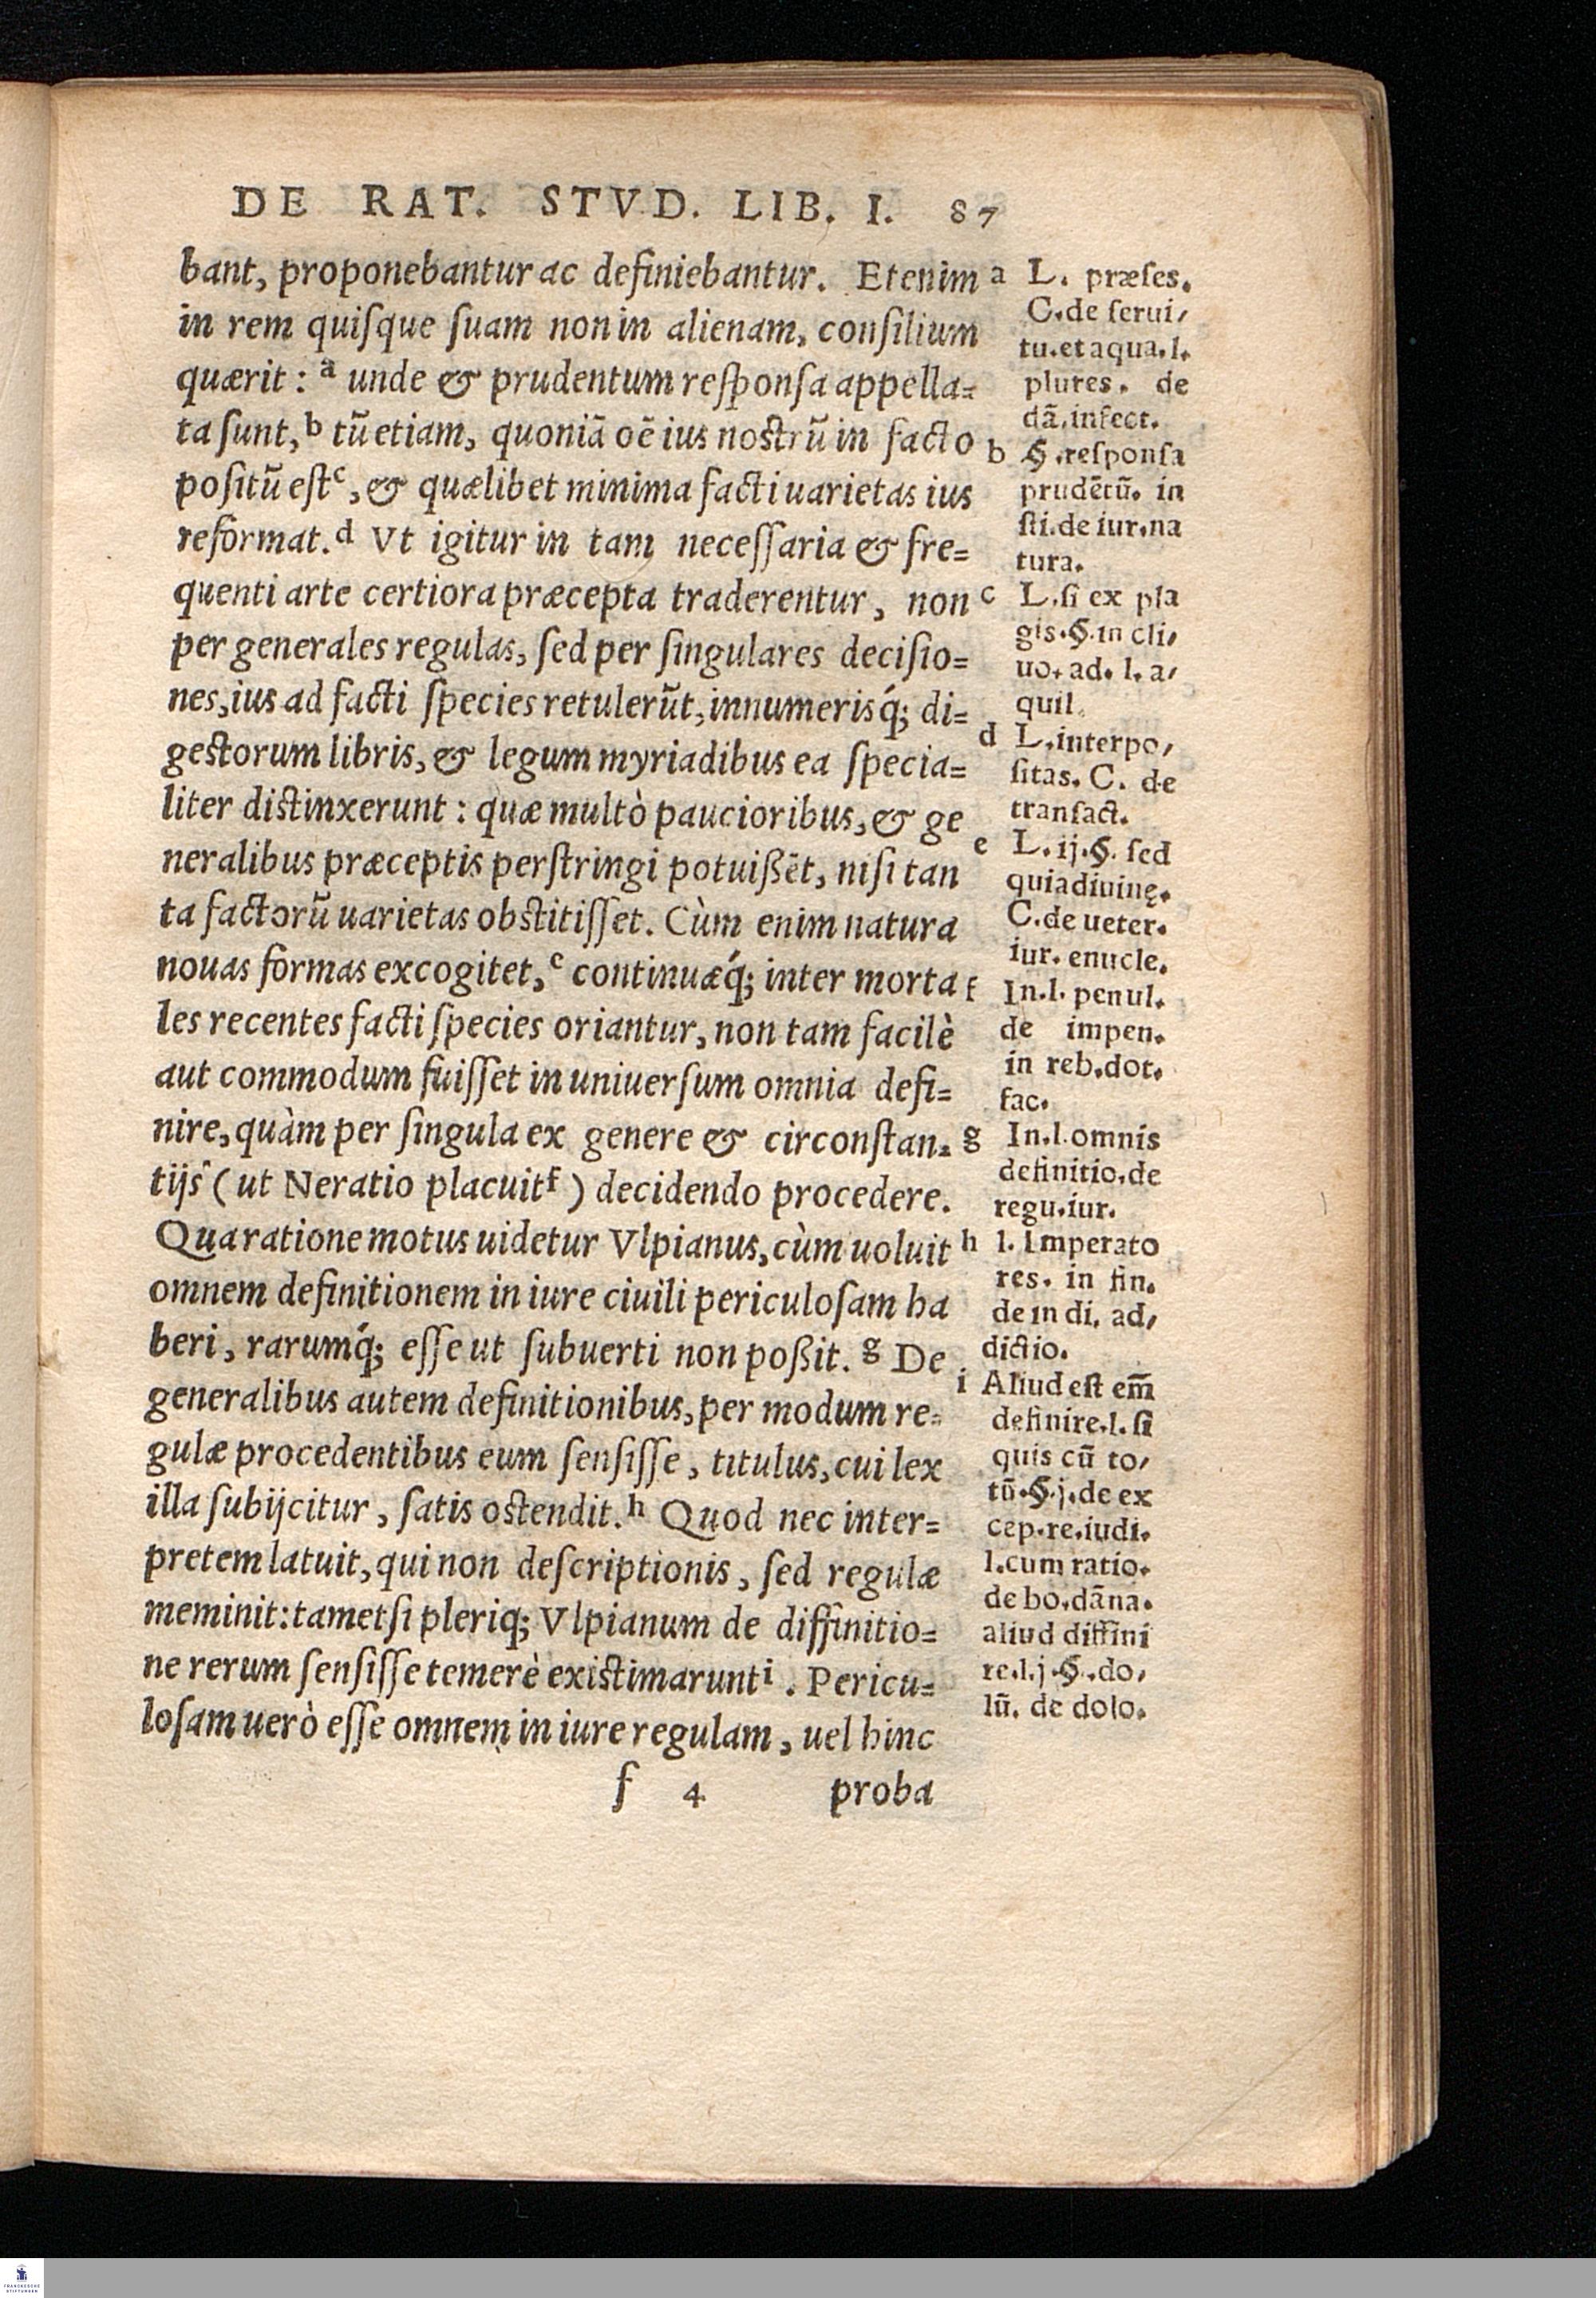 DE RAT. STVD. LIB. I. 87
bant, proponebantur ac definiebantur. Etenim
in rem quiſque ſuam non in alienam, conſilium
quærit : a unde & prudentum reſponſa appella=
ta ſunt, b tũ etiam, quoniã oẽ ius noſtrũ in facto
poſitũ eſt c, & quælibet minima facti uarietas ius
reformat. d Vt igitur in tam neceſſaria & fre=
quenti arte certiora præcepta traderentur, non
per generales regulas, ſed per ſingulares deciſio=
nes, ius ad facti ſpecies retulerũt, innumeriśq; di=
geſtorum libris, & legum myriadibus ea ſpecia=
liter diſtinxerunt : quæ multò paucioribus, & ge
neralibus præceptis perſtringi potuißẽt, niſi tan
ta factorũ uarietas obſtitiſſet. Cùm enim natura
nouas formas excogitet, e continuæq́; inter morta
les recentes facti ſpecies oriantur, non tam facilè
aut commodum fuiſſet in uniuerſum omnia defi=
nire, quàm per ſingula ex genere & circonſtan=
tijs ( ut Neratio placuit f ) decidendo procedere.
Qua ratione motus uidetur Vlpianus, cùm uoluit
omnem definitionem in iure ciuili periculoſam ha
beri, rarumq́; eſſe ut ſubuerti non poßit. g De
generalibus autem definitionibus, per modum re=
gulæ procedentibus eum ſenſiſſe, titulus, cui lex
illa ſubijcitur, ſatis oſtendit. h Quod nec inter=
pretem latuit, qui non deſcriptionis, ſed regulæ
meminit: tametſi pleriq; Vlpianum de diffinitio=
ne rerum ſenſiſſe temerè exiſtimarunt i. Pericu=
loſam uerò eſſe omnem in iure regulam, uel hinc
f 4 proba
a L. præſes.
C. de ſerui,
tu. et aqua. l.
plures. de
dã. infect.
b §. reſponſa
prudẽtũ. in
ſti. de iur. na
tura.
c L. ſi ex pla
gis. §. in cli,
uo. ad. l. a,
quil.
d L. interpo,
ſitas. C. de
tranſact.
e L. ij. §. ſed
quia diuinę.
C. de ueter.
iur. enucle.
f In. l. penul.
de impen.
in reb. dot.
fac.
g In. l. omnis
definitio. de
regu. iur.
h l. Imperato
res. in fin.
de in di. ad,
dictio.
i Aliud eſt em̃
definire. l. ſi
quis cũ to,
tũ. §. j. de ex
cep. re. iudi.
l. cum ratio.
de bo. dãna.
aliud diffini
re. l. j. §. do,
lũ. de dolo.
FRANCKESCHE
STIFTUNGEN